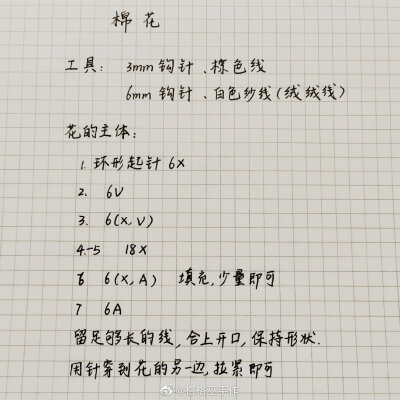 棉花
工具： 3mm 钩针、棕色线
6mm 钩针、白色纱线（绒绒线）
花的主体：
1. 环形起针 6X
2. 6V
3. 6(X,V)
4-5 18X
6 6(X,A) 填充,少量即可
7 6A
留足够长的线,合上开口,保持形状.
用针穿到花的另一边,拉紧即可